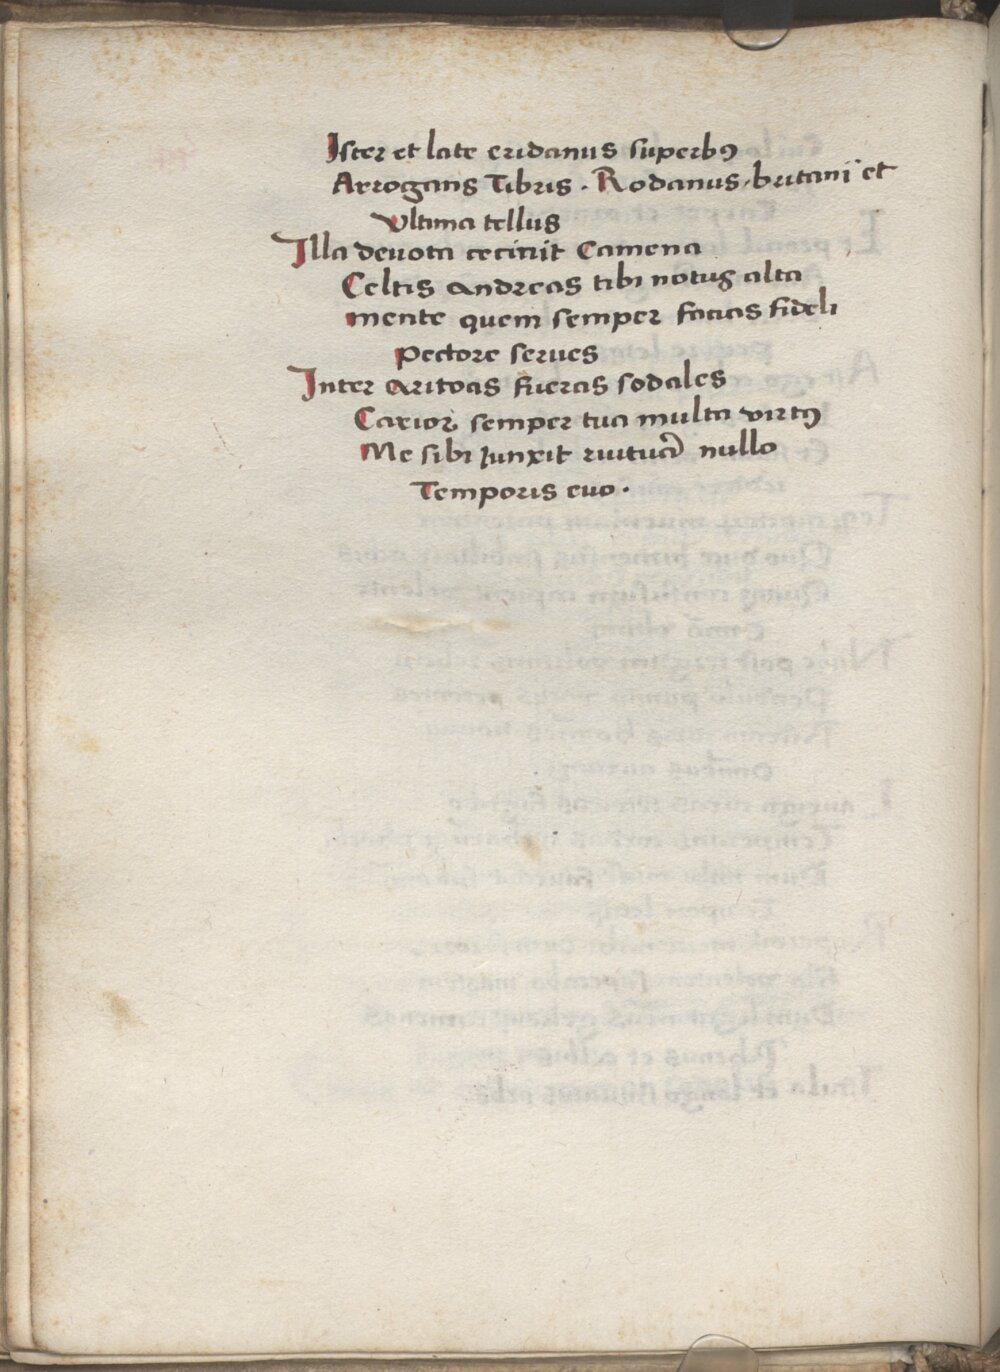 Ister et late eridanus superbꝯ
Arrogans Tibris . Rodanus, britani et
Vltima tellus
Illa deuota cecinit Camena
Celtis Andreas tibi notus alta
mente quem semper focias fideli
pectore serues
Inter fueras sodales
Carior semper tua multa virtꝯ
Me sibi iunxit nullo
Temporis euo .